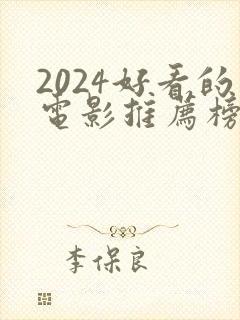 2024好看的
电影推薦榜
李保良